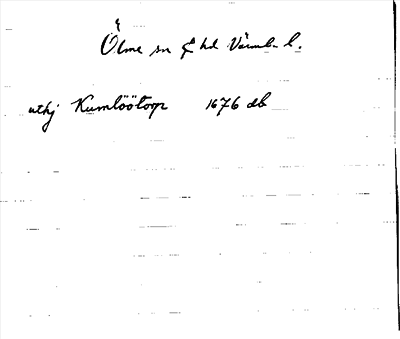 Ölme sn & hd Värml. l.
utkj Kumlöötorp 1676 db